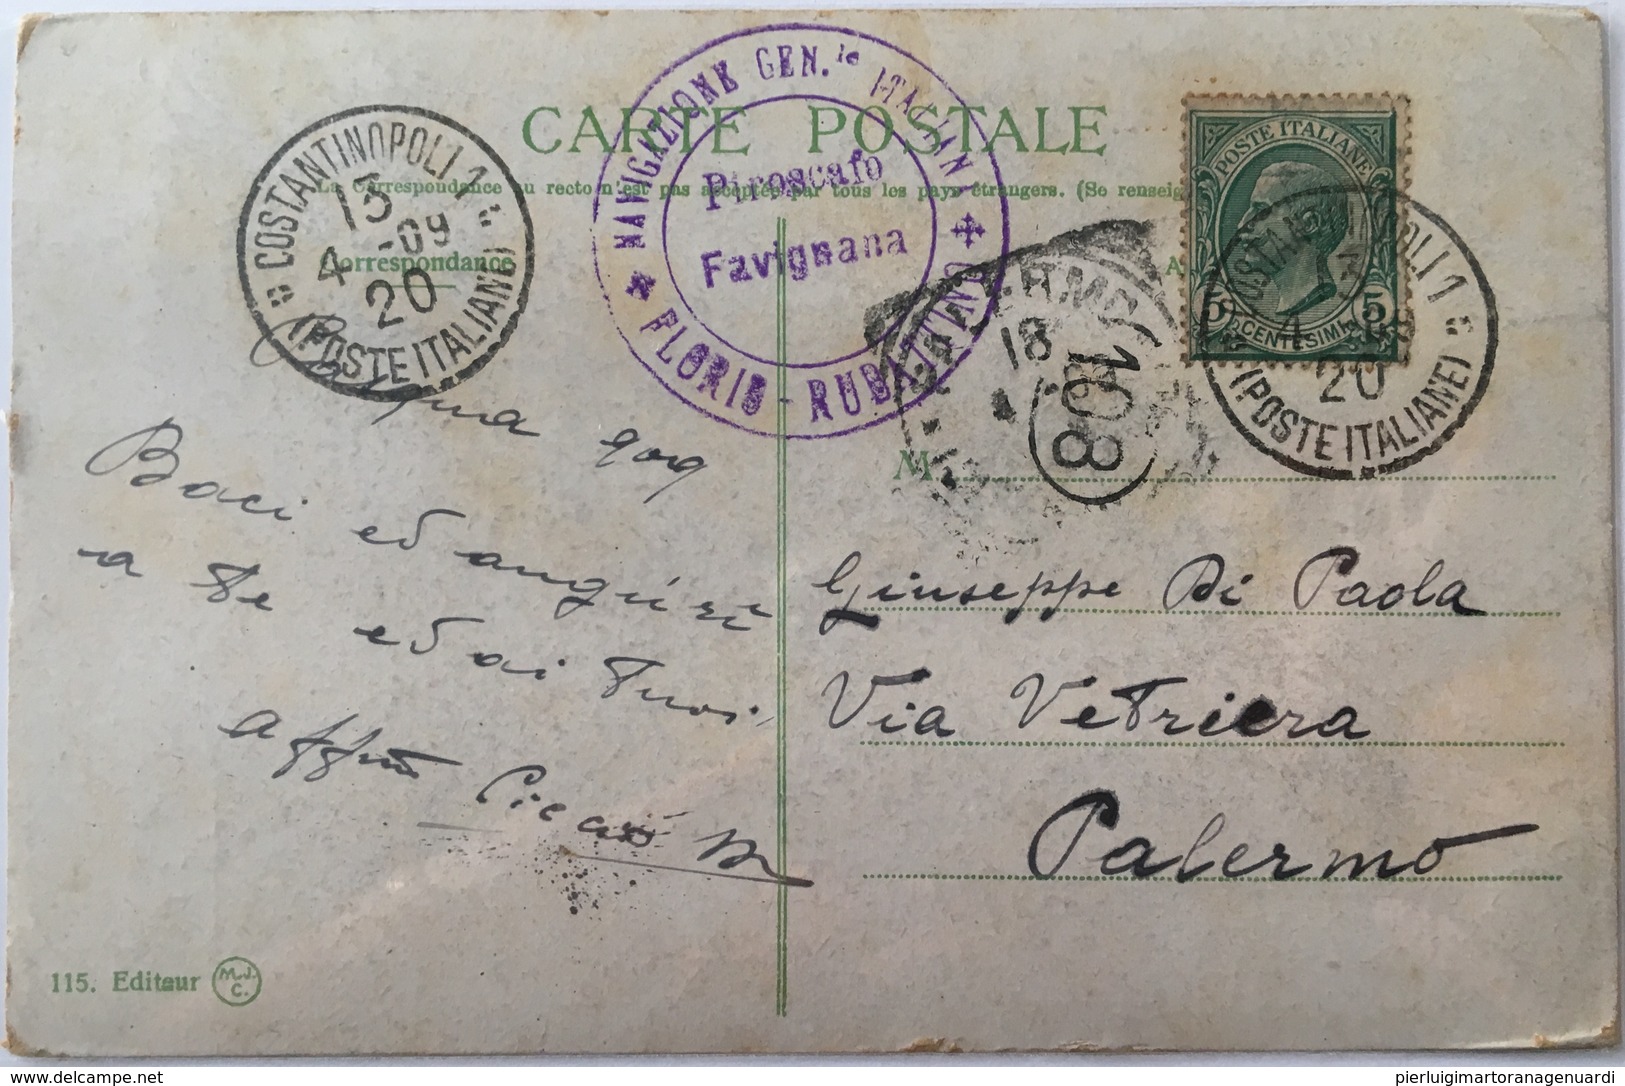 CARTE POSTALE
La Correspondance au recto n'est pas acceptée par tous les pays étrangers. (Se renseig
Correspondance
COSTANTINOPOLI 1
15
4 -09
20
(POSTE ITALIANE)
NAVIGAZIONE GEN.le ITALIANA
Piroscafo
Favignana
FLORIO - RUBATTINO
POSTE ITALIANE
5 5
CENTESIMI
COSTANTINOPOLI 1
20
(POSTE ITALIANE)
PALERMO
18
108
Pasqua 909
Baci ed auguri
a te ed ai tuoi
affmo
M
Giuseppe Di Paola
Via Vetriera
Palermo
115. Editeur M.J.C.
delcampe.net
pierluigimartoranagenuardi